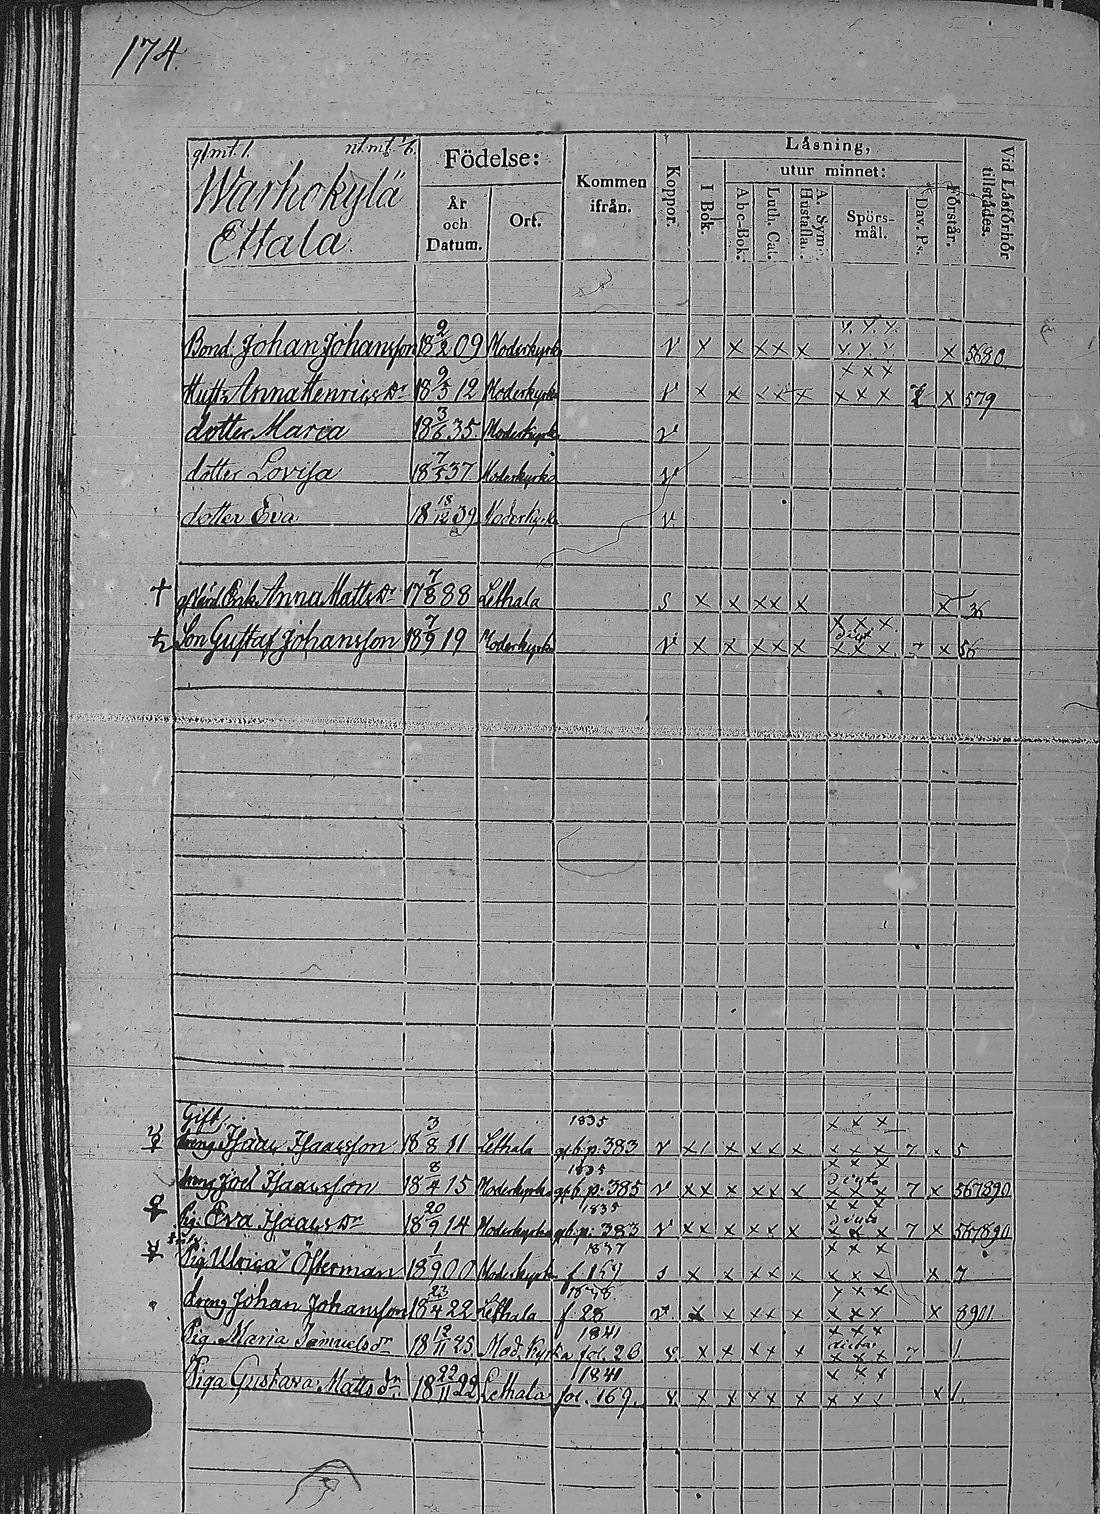 174.
Warhokylä
Ettala.
Födelse:
År och Datum.
Ort.
Kommen ifrån.
Koppor.
Läsning,
I Bok.
utur minnet:
Abc-Bok.
Luth. Cat.
A. Sym. Hustafla.
Spörsmål.
Dav. Ps.
Förstår.
Vid Läsförhör tillstädes.
Bond. Johan Johansson 18 2/2 09 Moderkyrk v x x xx x x 5680
Hust. Anna Henricsdr 18 9/5 12 Moderkyrk v x x xx x x x x x 579
dotter Maria 18 3/6 35 Moderkyrk v
dotter Lovisa 18 7/5 37 Moderkyrk v
dotter Eva 18 18/12 39 Moderkyrk v
Anna Mattsdr 17 7/8 88 Lethala s x x xx x x 36
Son Gustaf Johansson 18 7/9 19 Moderkyrk v x x xx x x x x 7 x 56
Gift
dreng Isaac Isaacsson 18 3/8 11 Lethala 1835 p. 383 v x x xx x x x x 7 x 5
dreng Joel Isaacsson 18 8/4 15 Moderkyrk 1835 p. 385 v xx x xx x x x x 7 x 567890
Pig. Eva Isaacsdr 18 20/9 14 Moderkyrka 1835 p. 383 v xx x xx x x x x 7 x 567890
Pig Ulrica Österman 18 1/9 00 Moderkyrk 1837 f. 159 s x x xx x x x x x 7
dreng Johan Johansson 18 23/4 22 Lethala f 28 v x x xx x x x x x 8901
Pig. Maria Samuelsdr 18 12/11 25 Mod. Kyrka 1841 fol. 26 v x x xx x x x x 7 1
Piga Gustava Mattsdr 18 22/11 22 Lethala 1841 fol. 169. v x x xx x x x x x 1.